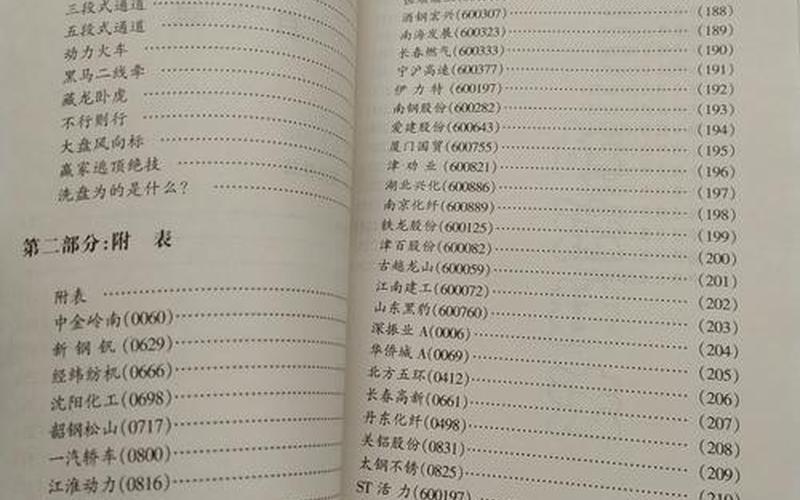 三段式通道
五段式通道
动力火车
黑马二线牵
藏龙卧虎
不行则行
大盘风向标
赢家逃顶绝技
洗盘为的是什么?
第二部分:附 表
附表
中金岭南(0060)
新 钢 钒(0629)
经纬纺机(0666)
沈阳化工(0698)
韶钢松山(0717)
一汽轿车(0800)
江淮动力(0816)
酒钢宏兴(600307) (188)
南海发展(600323) (189)
长春燃气(600333) (190)
宁沪高速(600377) (191)
伊 力 特(600197) (192)
南钢股份(600282) (193)
爱建股份(600643) (194)
厦门国贸(600755) (195)
津 劝 业(600821) (196)
湖北兴化(600886) (197)
南京化纤(600889) (198)
铁龙股份(600125) (199)
津百股份(600082) (200)
古越龙山(600059) (201)
江南建工(600072) (202)
山东黑豹(600760) (203)
深振业 A(0006) (204)
华侨城 A(0069) (205)
北方五环(0412) (206)
长春高新(0661) (207)
丹东化纤(0498) (208)
关铝股份(0831) (209)
太钢不锈(0825)
ST 活 力(600197)